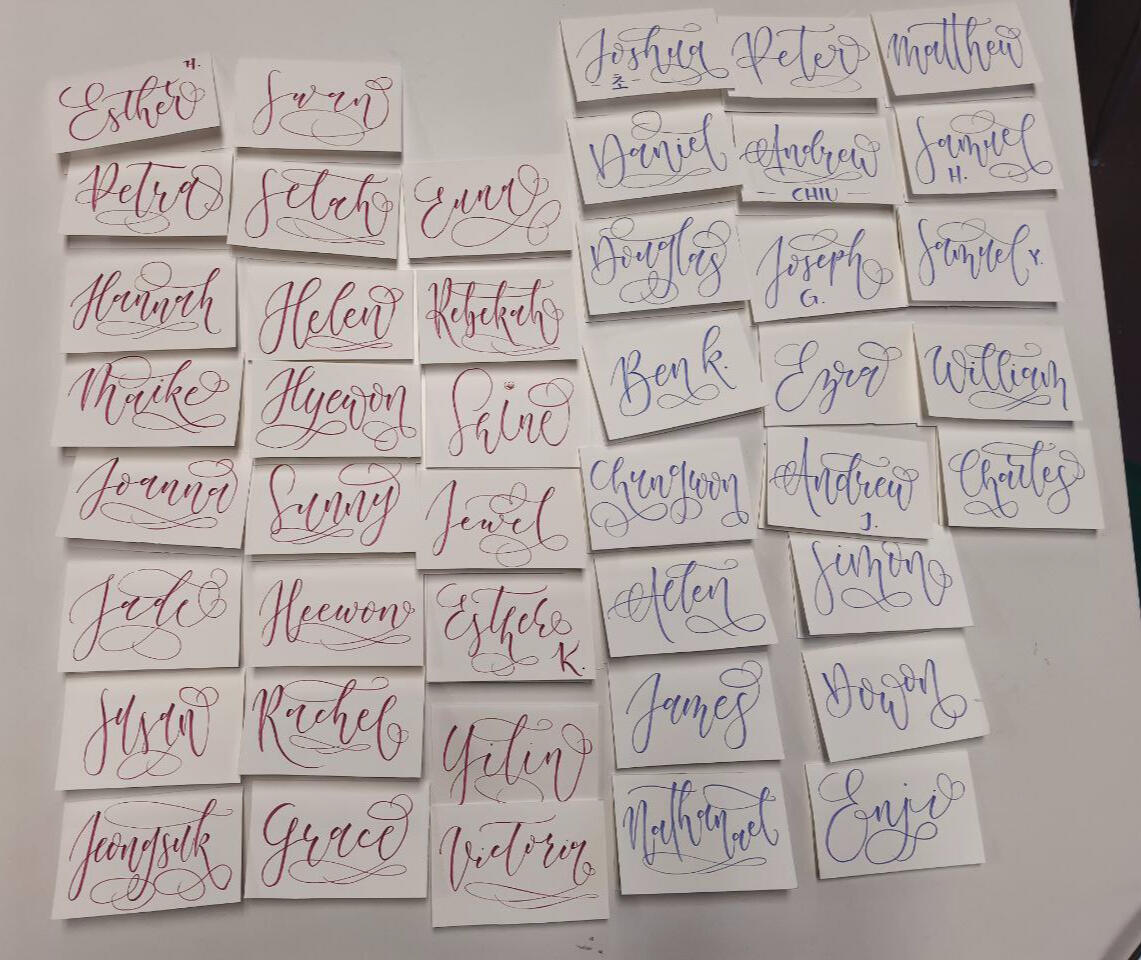 Esther H.
Swan
Petra
Selah
Euna
Hannah
Helen
Rebekah
Maike
Hyewon
Shine
Joanna
Sunny
Jewel
Jade
Heewon
Esther K.
Susan
Rachel
Yilin
Jeongsuk
Grace
Victoria
Joshua
초
Peter
Matthew
Daniel
Andrew
CHIU
Samuel
H.
Douglas
Joseph
G.
Samuel Y.
Ben K.
Ezra
William
Chungwon
Andrew
J.
Charles
Simon
James
Dowon
Nathanael
Enji